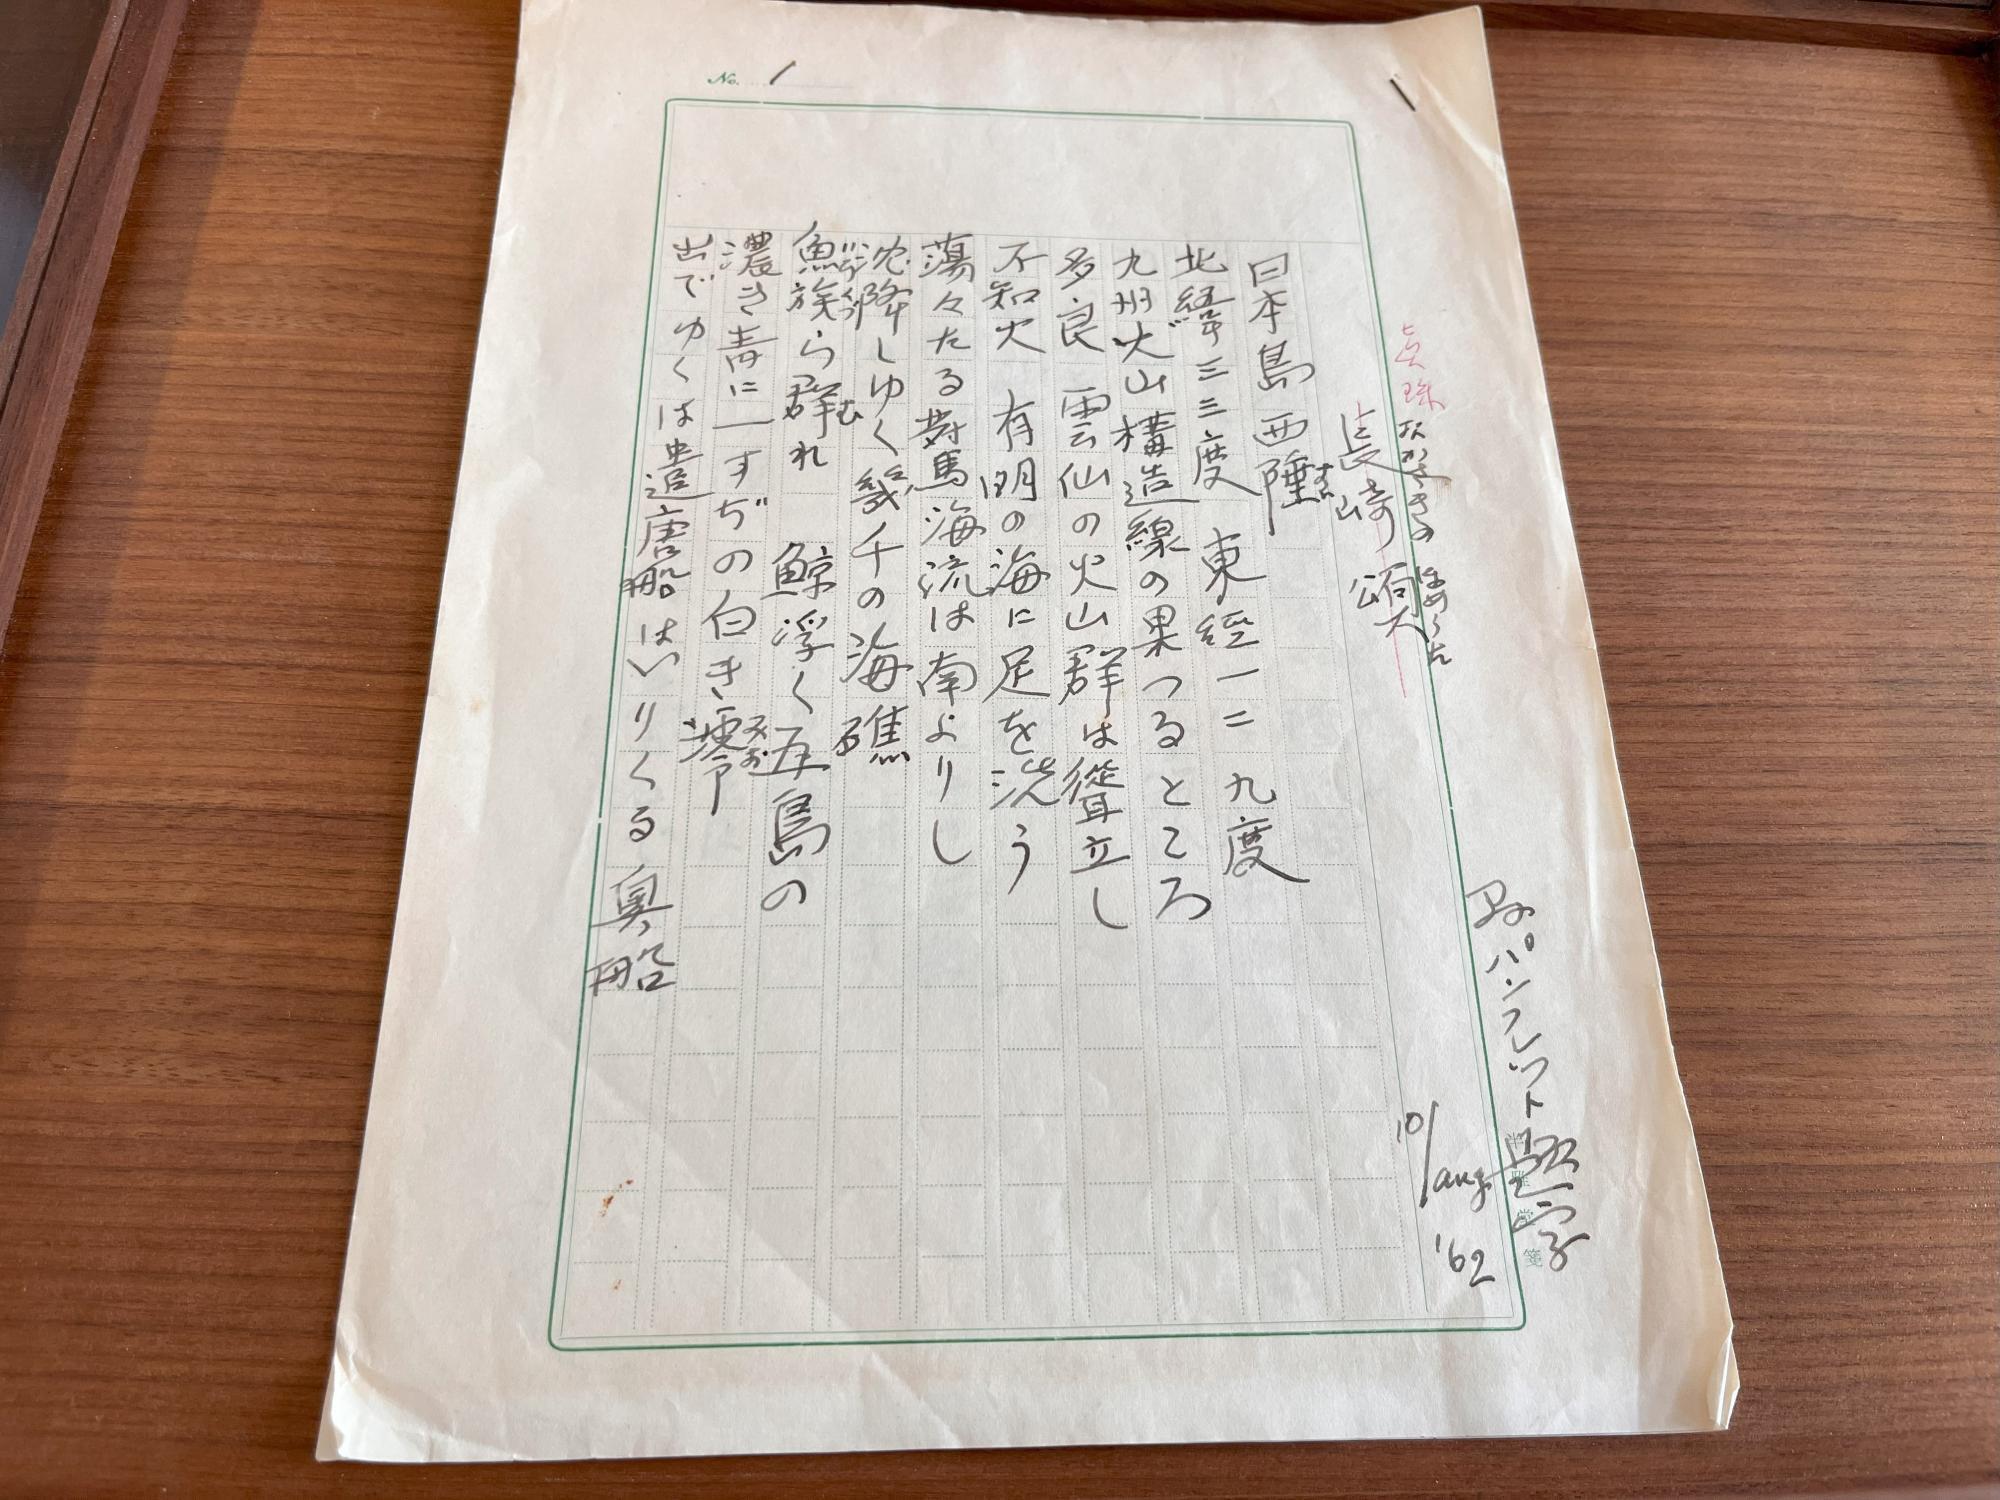 No. 1
県パンフレット 題字
10/aug. '62
真珠
ながさきの ほめうた
長崎 頌
日本島西陲
すい
北緯三三度 東經一二九度
九州火山構造線の果つるところ
多良 雲仙の火山群は聳立し
不知火 有明の海に足を洗う
蕩々たる對馬海流は南よりし
沈降しゆく幾千の海礁
魚族ら群れ 鯨浮く五島の
いろくづ
む
濃き青に一すぢの白き澪
みお
出でゆくは遣唐船はいりくる異船
半雅堂箋